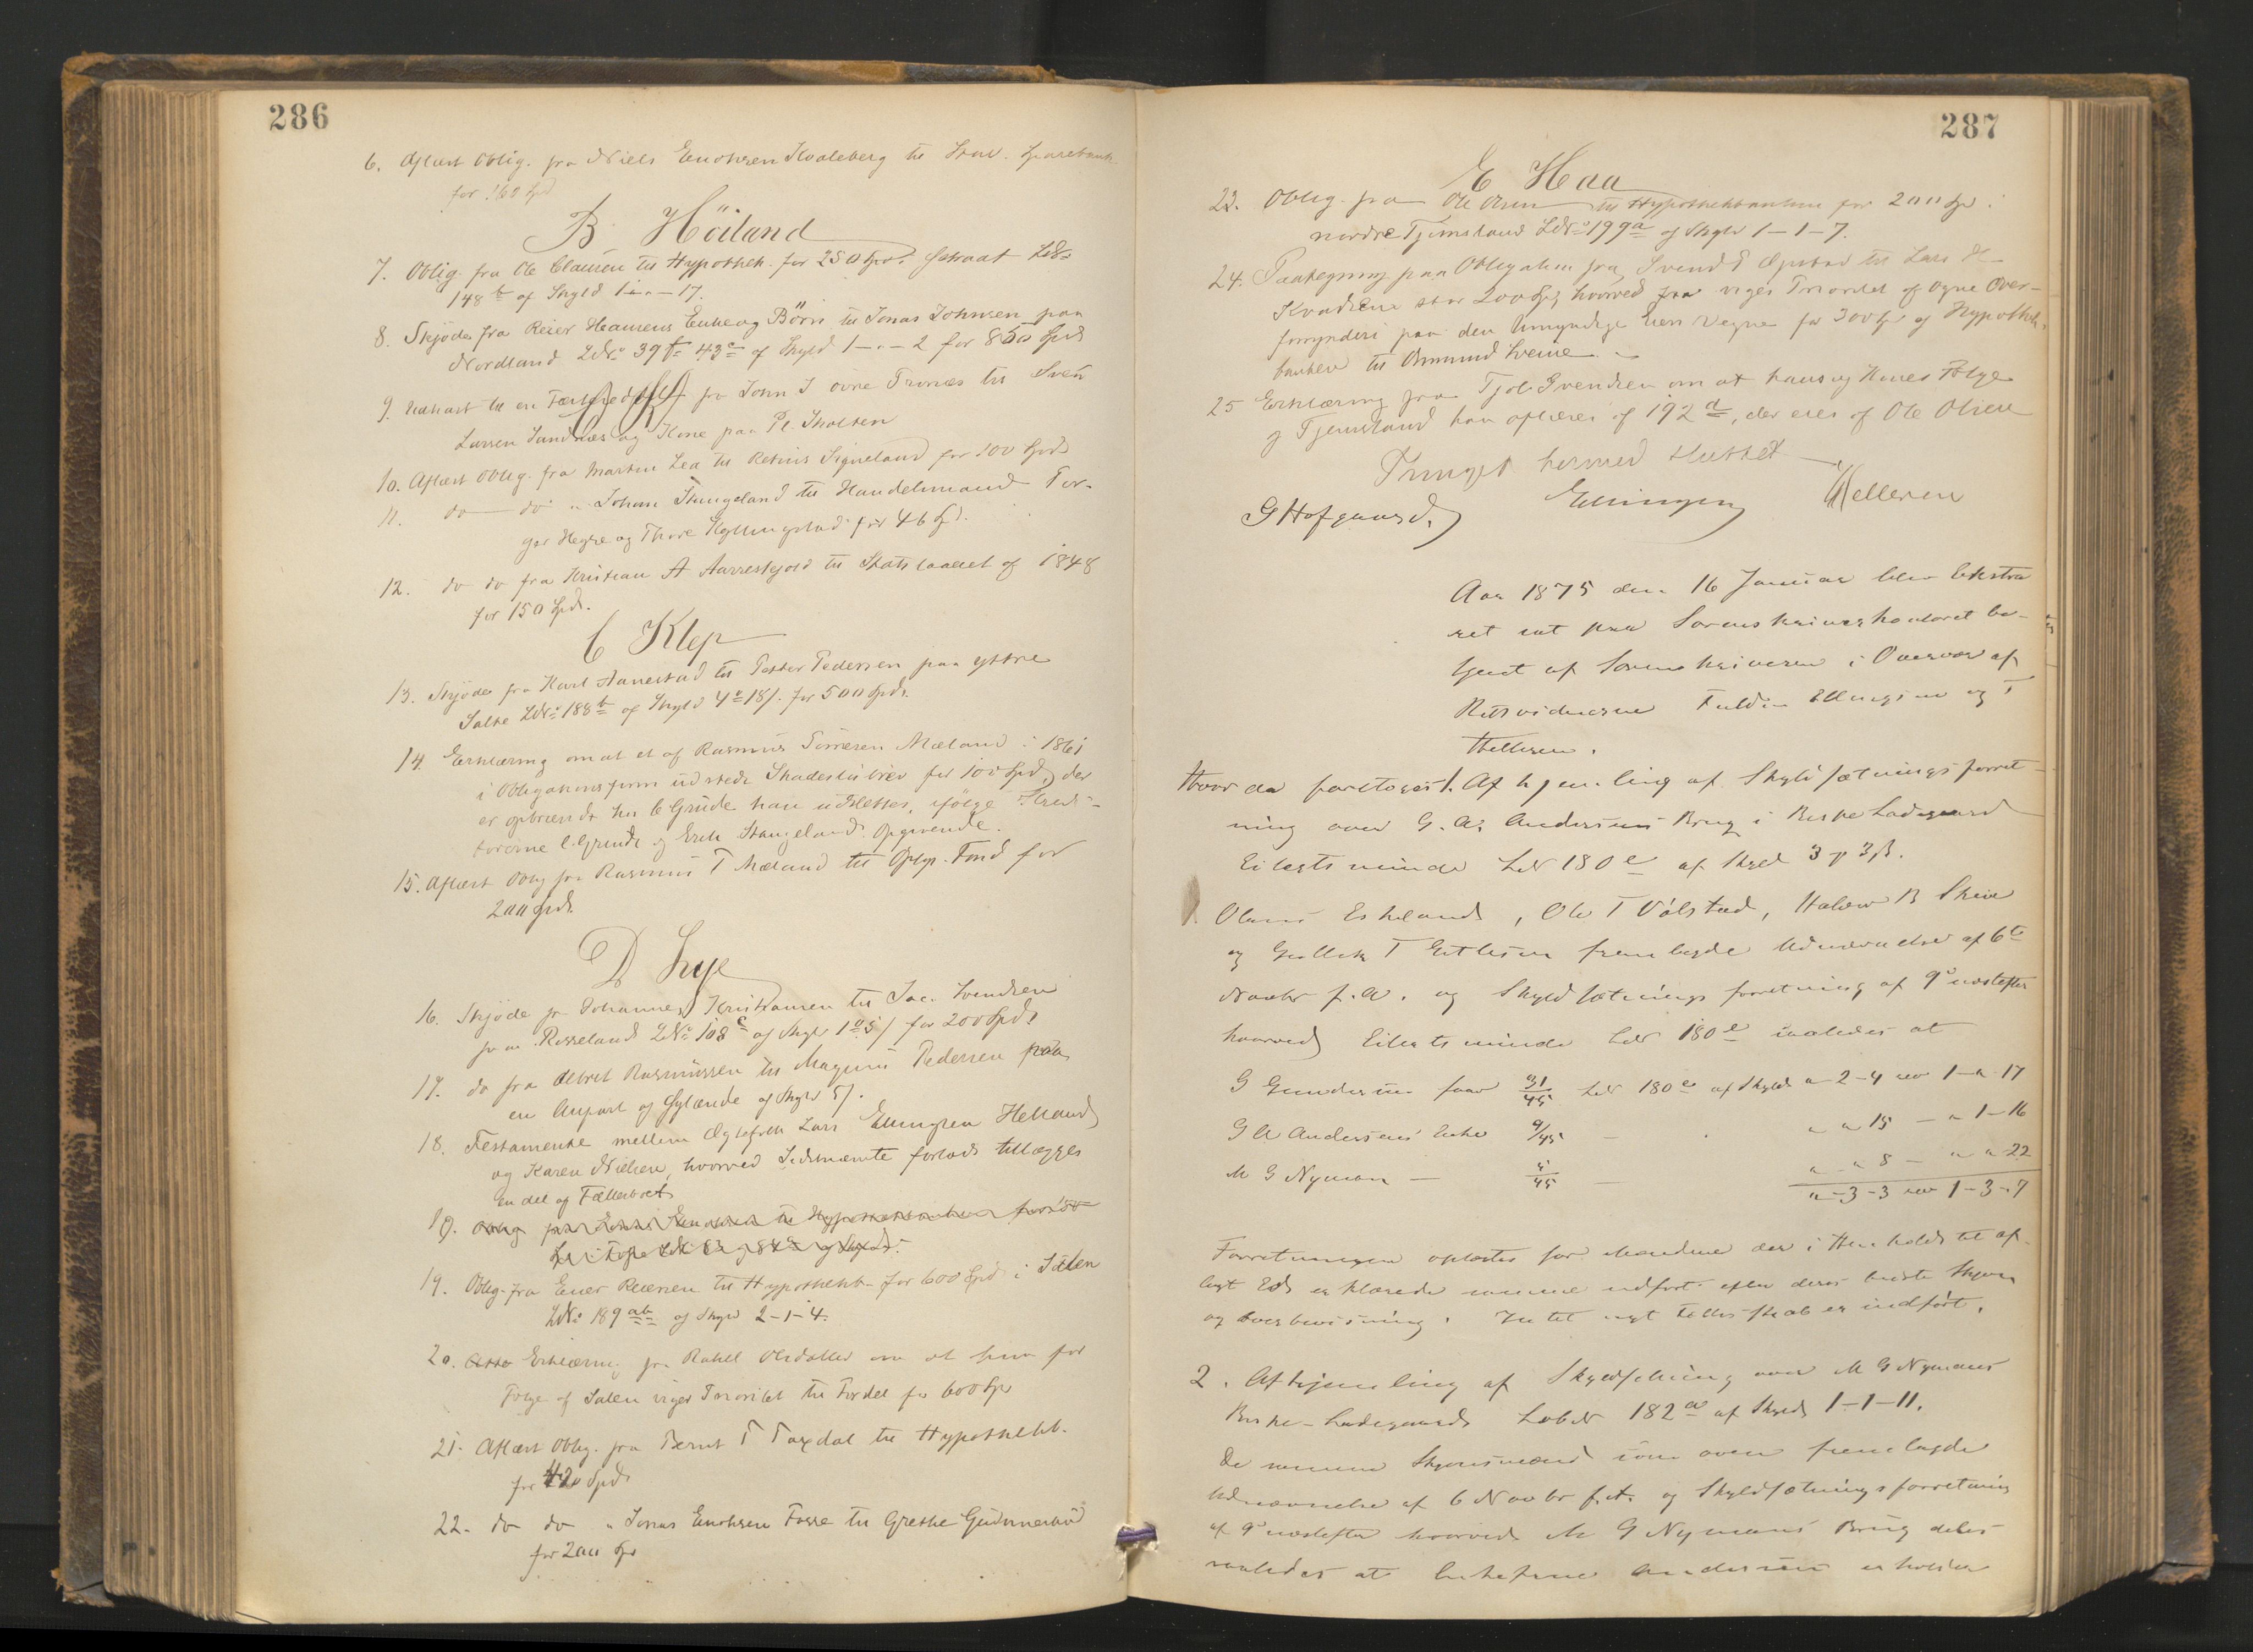 286
6. Aflæst Oblig. fra Niels Enochsen Kvaleberg til Stav. Sparebank
for 160 Spd
B. Höiland
7. Oblig. fra Ole Clausen til Hypothek. for 250 Spd.
148 b af Skyld 1 - " - 17.
8. Skjöde fra Reier Hansens Enke og Börn til Jonas Johnsen paa
Nordland LNo 39 43 af Skyld 1 - " - 2 for 850 Spd
9. til en fra John J övre Tronæs til Sven
Larsen Sandnæs og Kone paa Pl. Skolten
10. Aflæst Oblig. fra Morten Lea til Signeland for 100 Spd
11. do do " Johan Stangeland til Handelsmand Tor-
ger Hegre og Thore Kyllingstad for 46 Spd.
12. do do fra Kristian A Aarrestjold til Statslaanet af 1848
for 150 Spd.
C Klep
13. Skjöde fra Karl Aanestad til Petter Pedersen paa yttre
Salte LNo 188 b af Skyld 4 18 for 500 Spd.
14. Erklæring om at et af Rasmus Tönnesen Mæland i 1861
i Obligations form udstedt Skadeslösbrev for 100 Spd, der
er opbrændt hos C Grude kan udslettes, ifölge Kredi-
torerne C Grude og Erik Stangelands Opgivende.
15. Aflæst Oblig fra Rasmus T Mæland til Oplys. Fond for
200 Spd.
D Lye
16. Skjöde fra Johannes Kristiansen til Jac. Svendsen
paa Rosseland LNo 108 c af Skyld 1 5 for 200 Spd
17. do fra Albret Rasmussen til Magnus Pedersen paa
en Anpart af af Skyld 5
18. Testamente mellem Ægtefolk Lars Ellingsen Helland
og Karen Nielsen, hvorved Sidstnævnte forlods tillægges
en del af Fællesboet
19. Oblig
19. Oblig. fra Ener Reiersen til Hypothekb. for 600 Spd i Sælen
LNo 189 ab af Skyld 2-1-4.
20. Erklæring fra Rakel Olsdatter om at hun for
Folge af Salen viger Prioritet til Fordel for 600 Spd
21. Aflæst Oblig. fra Bernt T Taxdal til Hypothekb.
for 420 Spd
22. do do " Jonas Enochsen Fosse til Grethe
for 200 Spd
287
E Haa
23. Oblig. fra Ole Olsen til Hypothekbanken for 200 Spd i
nordre Tjemsland LNo 199 a af Skyld 1-1-7.
24. Paategning paa Obligation fra Svend Opstad til Lars
Kvadsene stor 200 Spd, hvorved viges Prioritet af Ogne Over-
formynderi paa den Umyndige Vegne for 300 Spd af Hypothek-
banken til Osmund
25 Erklæring fra Tjöl Svendsen om at hans og Kones Folge
af Tjemsland kan aflæses af 192 d, der eies af Ole Olsen
Thinget hermed sluttet
G Hofgaard. Ellingsen Hellesen
Aar 1875 den 16 Januar blev Ekstra
ret sat paa Sorenskriverkontoret be-
tjent af Sorenskriveren i Overvær af
Retsvidnerne Fuldm Ellingsen og T
Hellesen.
Hvor da foretoges: 1. Afhjemling af Skyldsætningsforret-
ning over G. A. Andersens Brug i Buske Ladegaard
Eilertsminde LNr 180 e af Skyld 3 ort 3 ß.
Olaus Eskeland, Ole T Völstad, Halvor B Skeie
og T fremlagde Udnævnelse af 6te
Novbr f. A. og Skyldsætningsforretning af 9 næstefter
hvorved Eilertsminde LNr 180 e saaledes at
G Gundersen faar 31/45 LNr 180 e af Skyld " 2-4 rev 1-"-17
G A Andersens Enke 9/45 — " " 15 — " 1-16
M G Nyman — 5/45 — " " 8 — " " 22
" -3-3 rev 1-3-7
Forretningen oplæstes for Mændene der i Henhold til af-
lagt Ed erklærede samme udfört efter deres bedste Skjön
og Overbevisning. Intet nyt Fællesskab er indfört.
2. Afhjemling af Skyldsætning over M G Nymans
Buske-Ladegaard LöbNr 182 a af Skyld 1-1-11.
De samme Skjönsmænd som oven fremlagde
Udnævnelse af 6 Novbr f. A. og Skyldsætningsforretning
af 9 næstefter hvorved M G Nymans Brug deles
saaledes at Enkefrue Andersen erholder